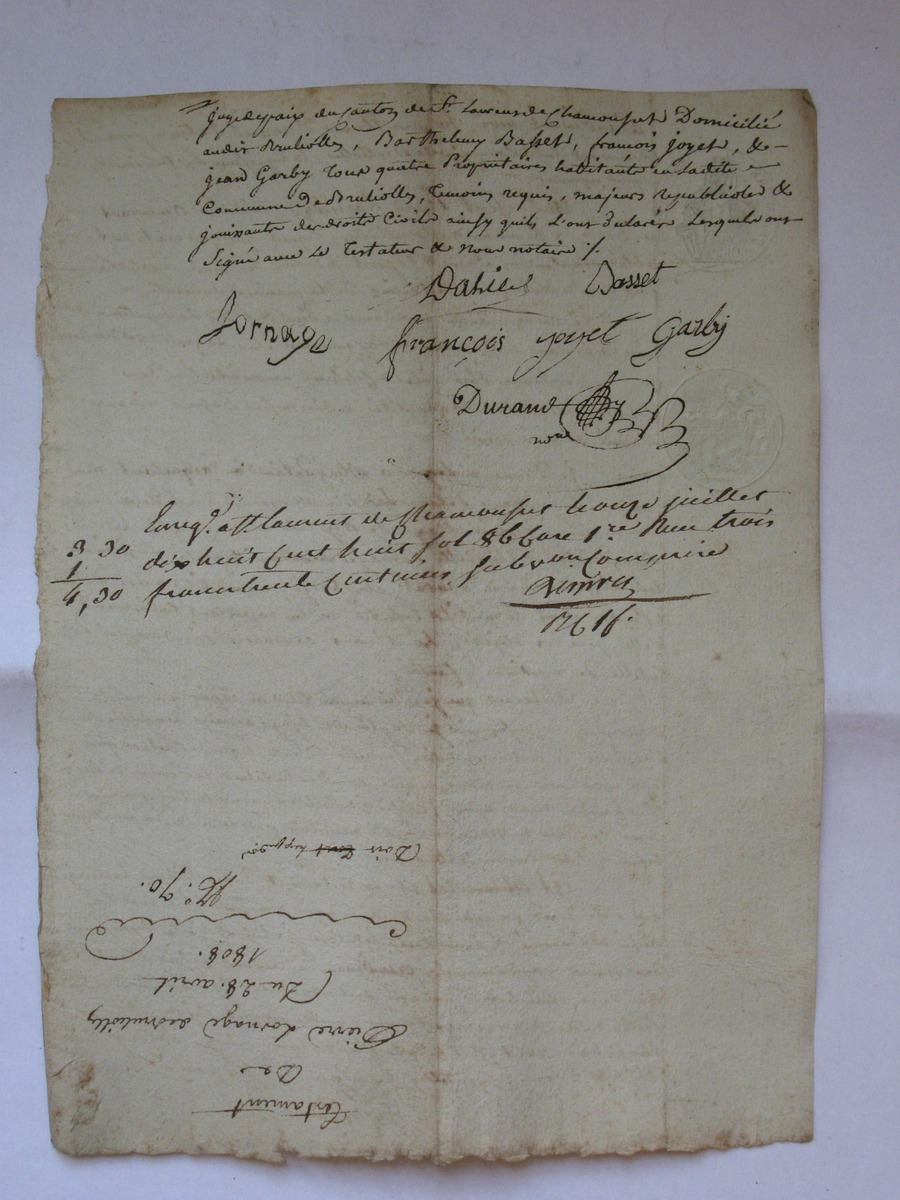 juge de paix du Canton de St Laurens de Chamousset Domicilié
audit Brullioles, Barthelemy Basset, francois joyet, &
jean Garby tous quatre Proprietaires habitants en Ladite
Commune De Brullioles, temoins requis, majeurs republicoles &
jouissants des droits Civils ainsy quils L'ont Declarés Lesquels ont
Signé avec Le Testateur & Nous notaire ./.
Dahies Basset
Jornage françois joyet Garby
Durand
nore
Enregé a St laurent de Chamousset le onze juillet
3 30 dix huit Cent huit fol 86 Case 1re Reçu trois
1
4,30 francs trente Centimes Subvon Comprise
1616.
Testament
De
Pierre Jornage de Brullioly
Du 28. avril
1808.
No. 70.
Dois